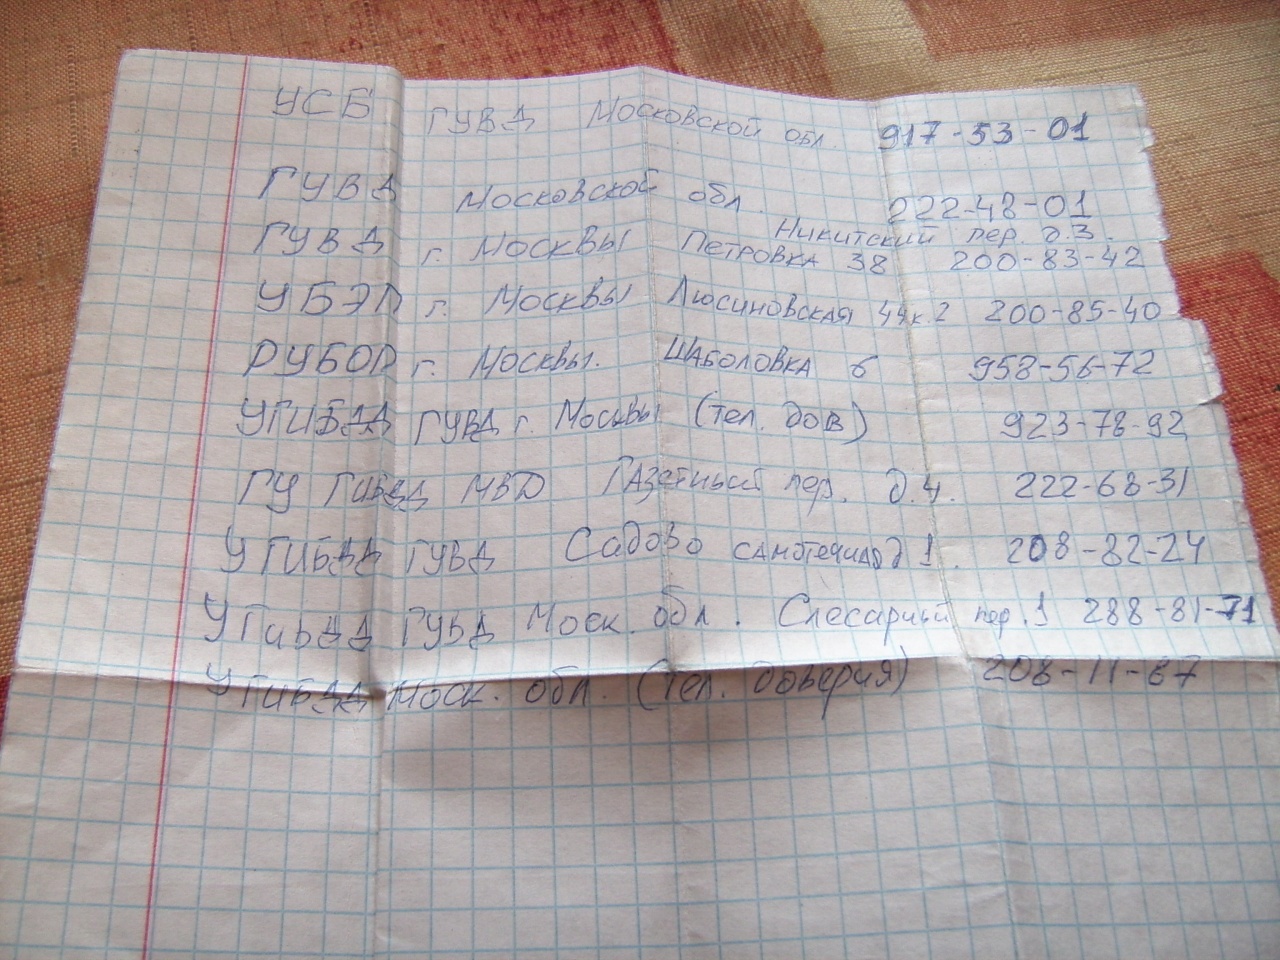 УСБ ГУВД Московской обл. 917-53-01
ГУВД Московской обл. 222-48-01
Никитский пер. д.3.
ГУВД г. Москвы Петровка 38 200-83-42
УБЭП г. Москвы Люсиновская 44к.2 200-85-40
РУБОП г. Москвы. Шаболовка 6 958-56-72
УГИБДД ГУВД г. Москвы (тел. дов) 923-78-92
ГУ ГИБДД МВД Газетный пер. д.4. 222-68-31
УГИБДД ГУВД Садово самотечная д 1. 208-82-24
УГИБДД ГУВД Моск. обл. Слесарный пер.1 288-81-71
УГИБДД Моск. обл. (тел. доверия) 208-11-67